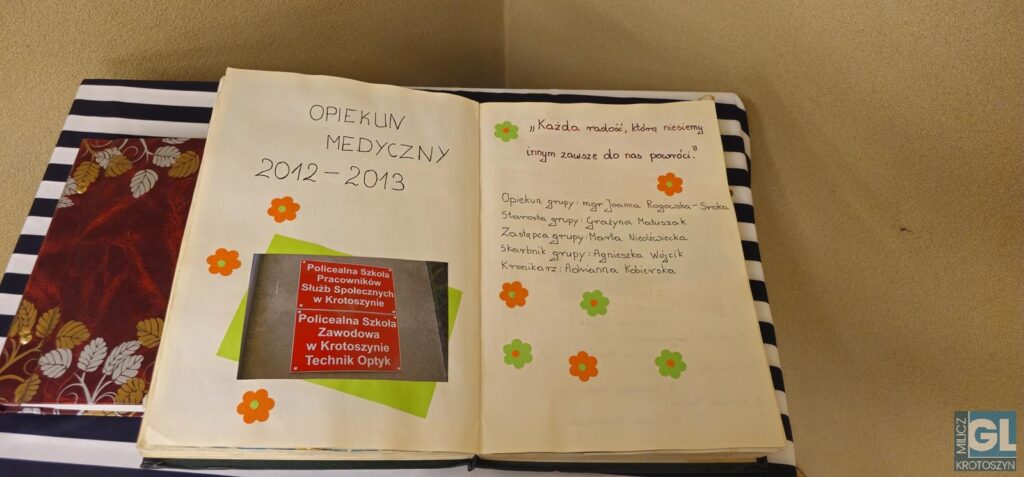 OPIEKUN
MEDYCZNY
2012 - 2013
Policealna Szkoła
Pracowników
Służb Społecznych
w Krotoszynie
Policealna Szkoła
Zawodowa
w Krotoszynie
Technik Optyk
„Każda radość, którą niesiemy
innym zawsze do nas powróci."
Opiekun grupy: mgr Joanna Rogowska-Sroka
Starosta grupy: Grażyna Matuszak
Zastępca grupy: Marta Niedźwiecka
Skarbnik grupy: Agnieszka Wójcik
Kronikarz: Adrianna Kobierska
MILICZ
GL
KROTOSZYN